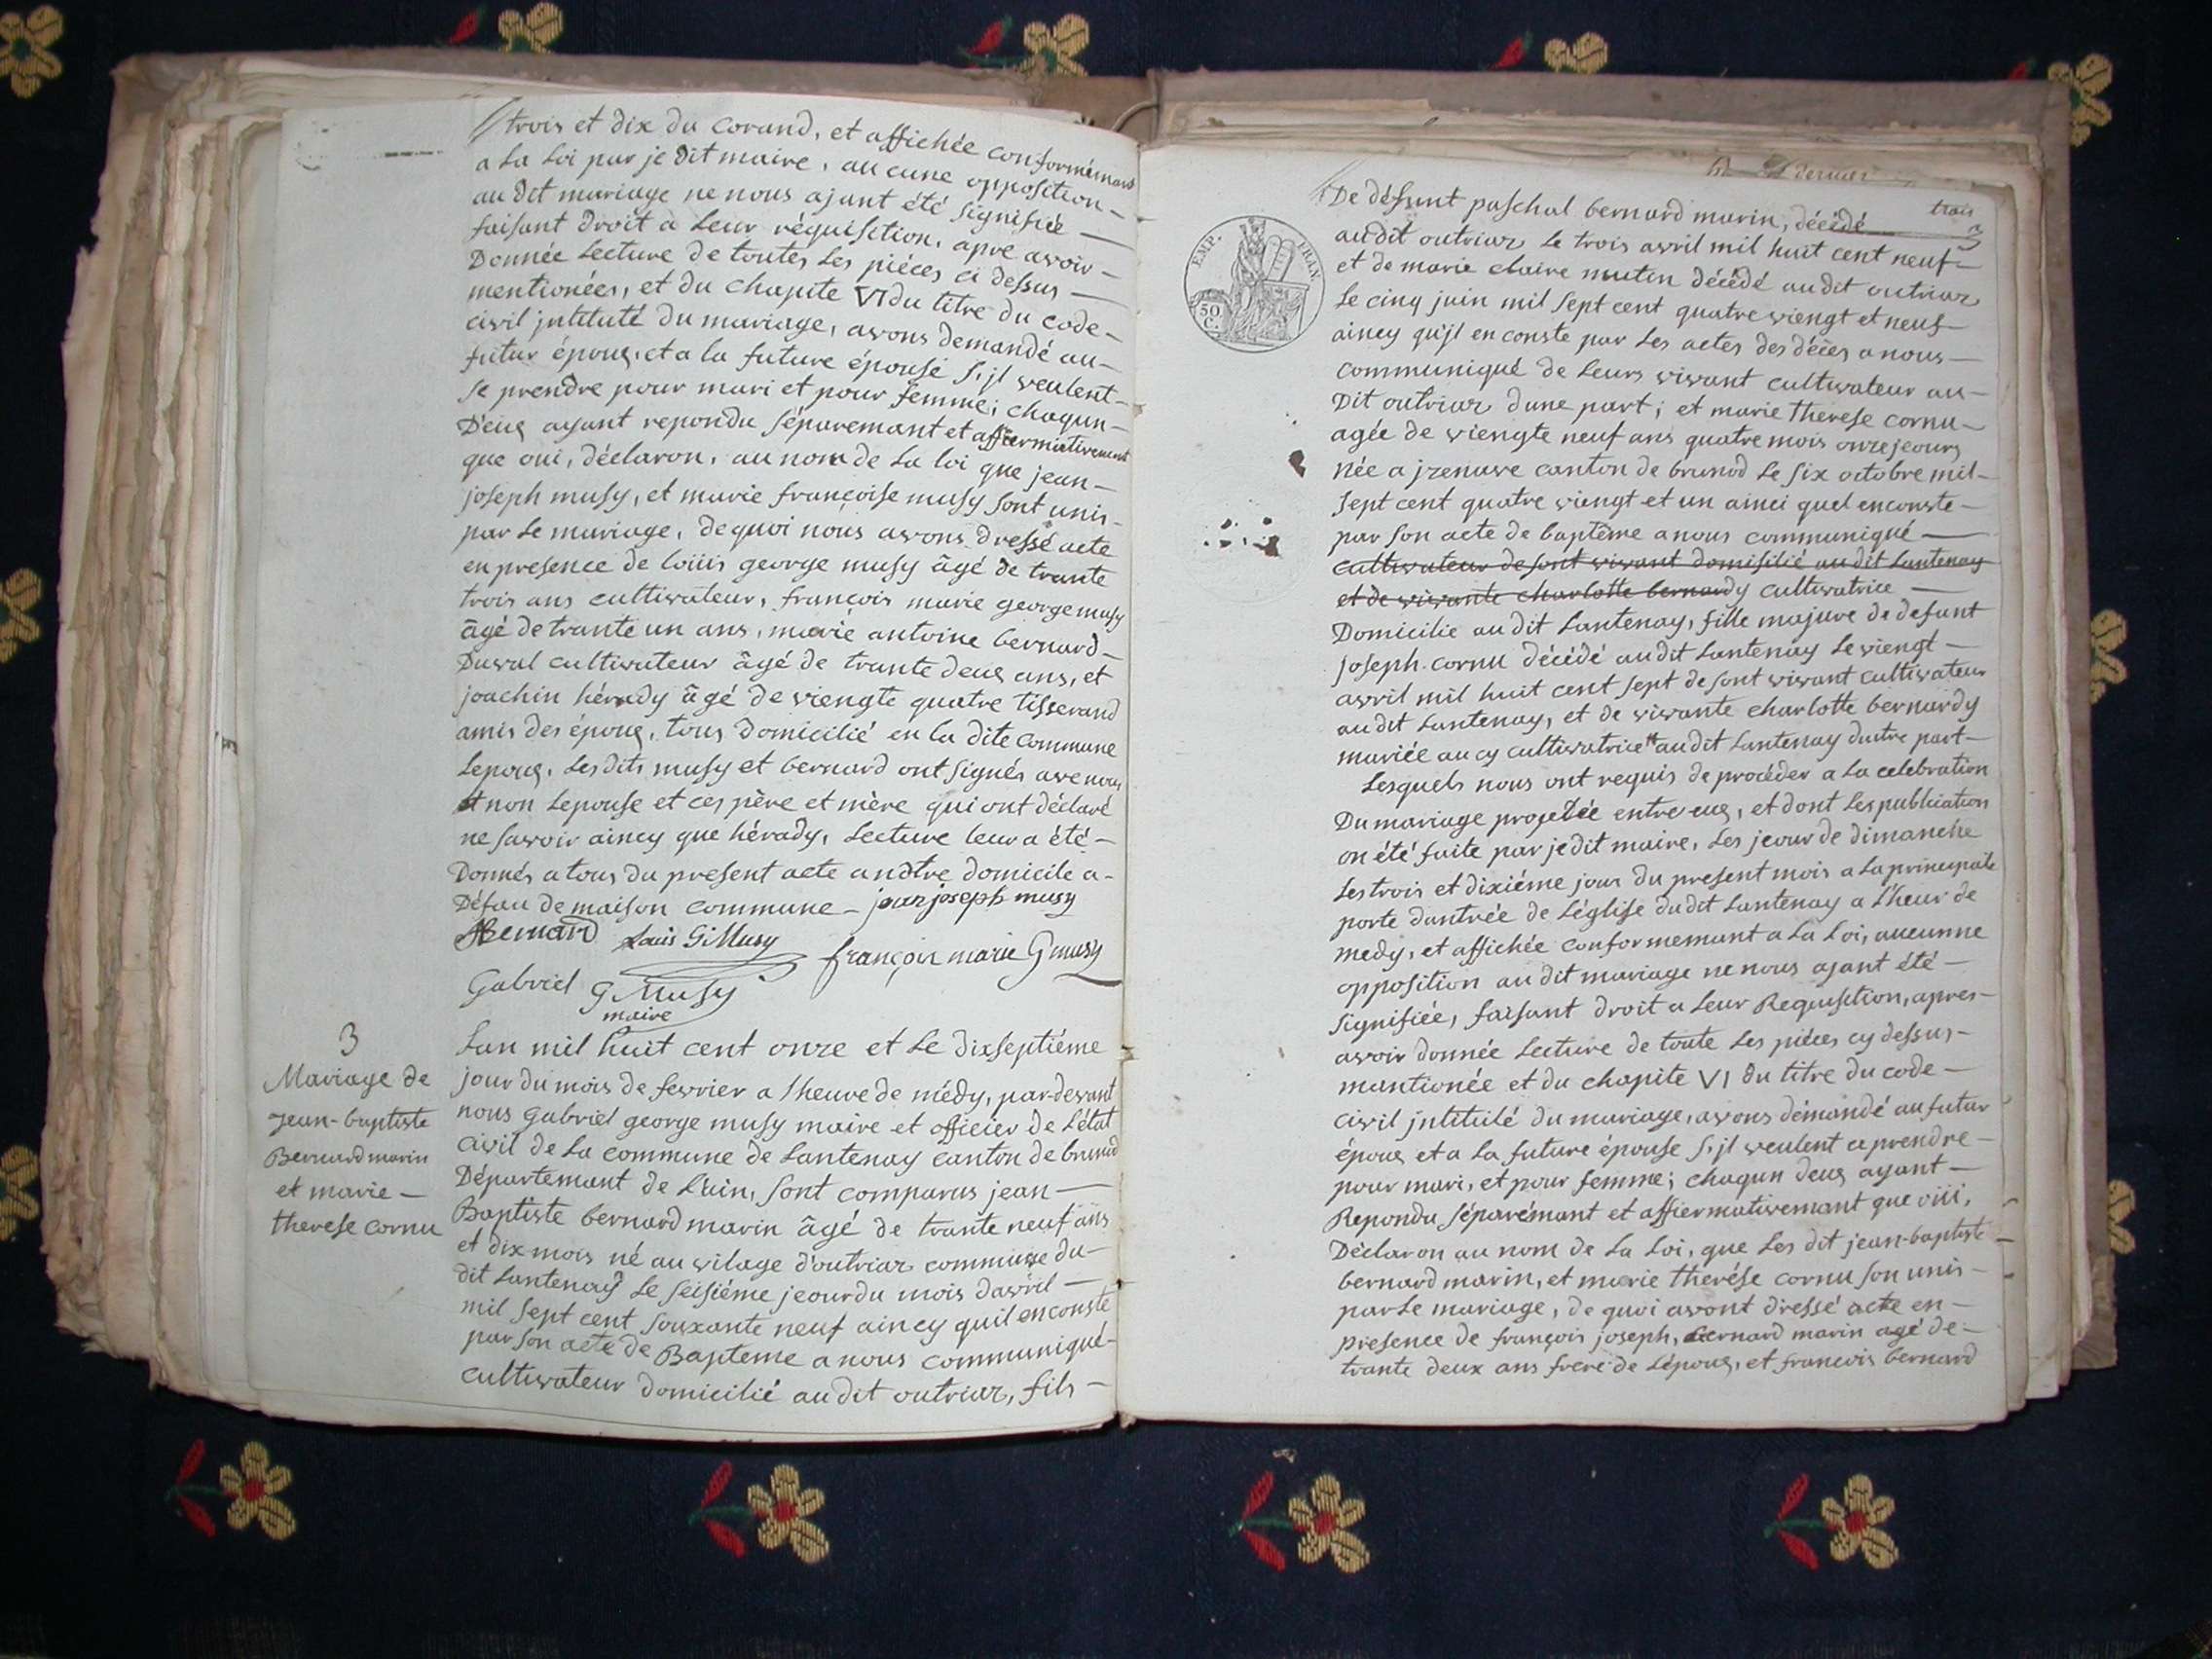 trois et dix du Corand, et affichée conformémant
a La Loi par je dit maire, aucune opposition
au dit mariage ne nous ajant été signifiée
faisant droit a Leur réquisition, apre avoir
Donnée Lecture de toutes Les piéces ci dessus
mentionées, et du chapite VI du titre du code
civil jntitulé du mariage, avons demandé au
futur époug, et a la future épouse s'jl veulent
se prendre pour mari et pour femme; chaqun
D'eug ayant repondu séparemant et affiermativement
que oui, déclaron, au nom de La loi que jean
joseph musy, et marie françoise musy sont unis
par Le mariage, de quoi nous avons dressé acte
en presence de loiiis george musy âgé de trante
trois ans cultivateur, françois marie george musy
âgé de trante un ans, marie antoine bernard
Duval cultivateur âgé de trante deug ans, et
joachin hérady âgé de viengte quatre tisserand
amis des époug, tous Domicilié en la dite commune
Lepoug, Les dits musy et bernard ont signés ave nous
et non Lepouse et ces père et mère qui ont déclaré
ne savoir aincy que hérady, Lecture leur a été
Donnés a tous du present acte a nôtre domicile a
Défau de maison commune jean joseph musy
Bernard Louis G Musy françois marie G musy
Gabriel G Musy
maire
3
Mariage de
jean-baptiste
Bernard marin
et marie
therese cornu
Lan mil huit cent onze et Le dixseptiéme
jour du mois de fevrier a l'heure de médy, par-devant
nous Gabriel george musy maire et officier de L'état
civil de La commune de Lantenay canton de brunod
Département de L'ain, sont comparus jean
Baptiste bernard marin âgé de trante neuf ans
et dix mois né au vilage d'outriaz commune du
dit Lantenay Le seisiéme jeour du mois d'avril
mil sept cent souxante neuf aincy quil enconste
par son acte de Bapteme a nous communiqué
cultivateur domicilié au dit outriaz, fils
dernier
trois
3
EMP. FRAN
50 C.
De défunt paschal bernard marin, décédé
au dit outriaz Le trois avril mil huit cent neuf
et de marie claire mutin décédé au dit outriaz
Le cinq juin mil sept cent quatre viengt et neuf
aincy qu'jl en conste par Les actes des décès a nous
communiqué de Leurs vivant cultivateur au
Dit outriaz dune part; et marie therese cornu
agée de viengte neuf ans quatre mois onze jeours
née a jzenave canton de brunod Le six octobre mil
sept cent quatre viengt et un ainci quel enconste
par son acte de baptême a nous communiqué
cultivateur de sont vivant domisilié au dit Lantenay
et de vivante charlotte bernardy cultivatrice
Domicilie au dit Lantenay, fille majure de defunt
joseph cornu décédé au dit Lantenay Le viengt
avril mil huit cent sept de sont vivant cultivateur
au dit Lantenay, et de vivante charlotte bernardy
mariée au cy cultivatrice au dit Lantenay dautre part
Lesquels nous ont requis de procéder a La celebration
Du mariage projetée entre eug, et dont Les publication
on été faite par je dit maire, Les jeour de dimanche
Les trois et dixiéme jour du present mois a La principale
porte dantrée de L'église du dit Lantenay a l'heur de
medy, et affichée conformemant a La Loi, aucunne
opposition au dit mariage ne nous ajant été
signifiée, faisant droit a Leur Requisition, apres
avoir donnée Lecture de toute Les piéces cy dessus
mantionée et du chapite VI du titre du code
civil jntitulé du mariage, avons démandé au futur
époug et a La future épouse s'jl veulent ce prendre
pour mari, et pour femme; chaqun deug ayant
Repondu séparémant et affiermativemant que oiii,
Déclaron au nom de La Loi, que Les dit jean-baptiste
bernard marin, et marie thérése cornu son unis
par Le mariage, de quoi avont dressé acte en
presence de françois joseph, bernard marin agé de
trante deux ans frere de Lépoug, et francois bernard